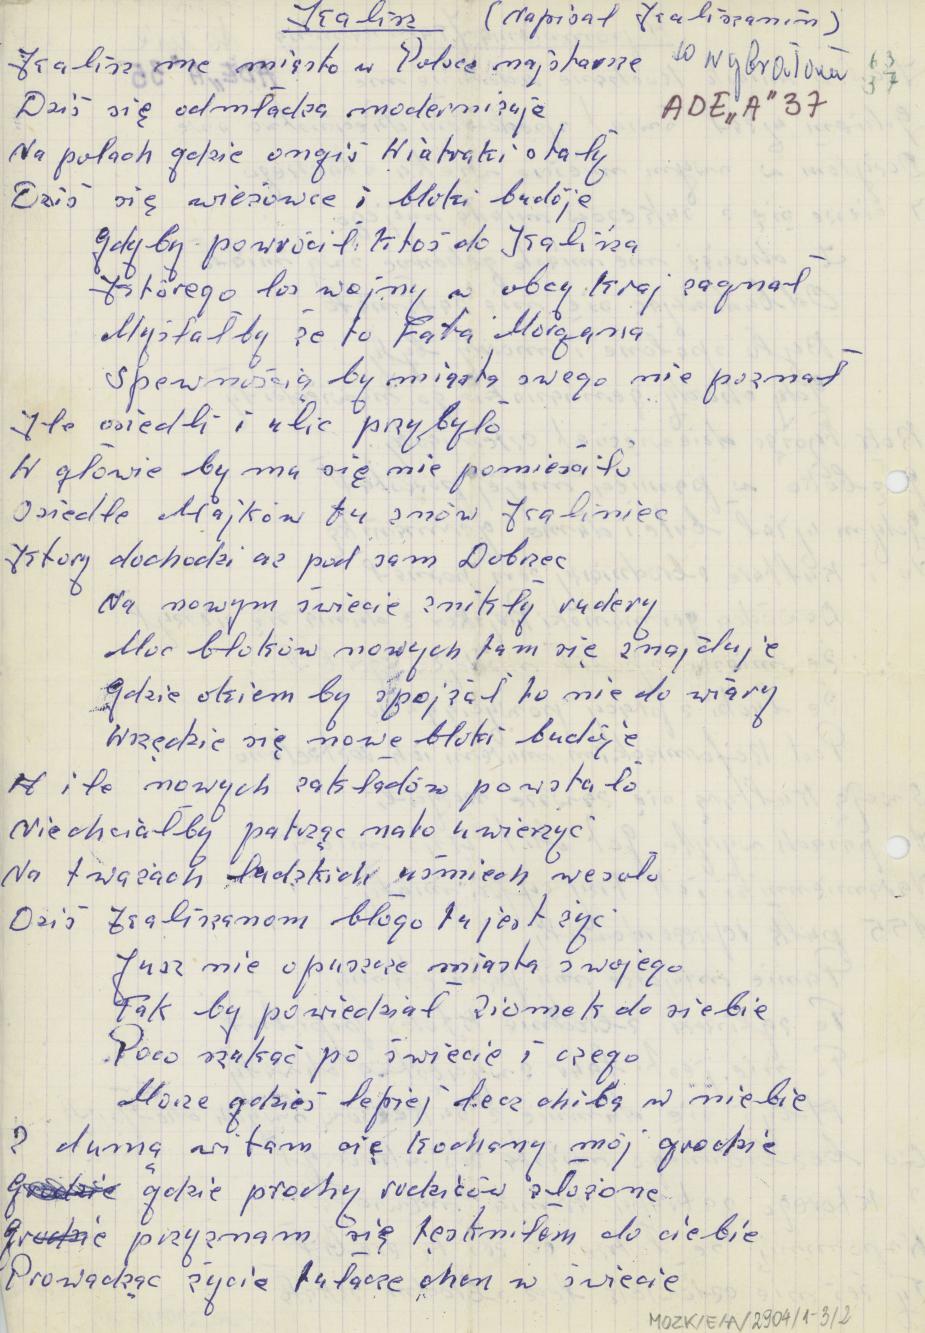 Kalisz (Napisał Kaliszanin)
Kalisz me miasto w Polsce najstarsze
Dziś się odmładza modernizuje
ADE „A" 37
63
37
Na polach gdzie ongiś Wiatraki stały
Dziś się wieżowce i bloki budóje
Gdyby powrócił Ktoś do Kalisza
Którego los wojny w obcy Kraj zagnał
Myślałby że to Fata Morgana
Spewnością by miasta swego nie poznał
Ile osiedli i ulic przybyło
W głowie by mu się nie pomieściło
Osiedle Majków tu znów Kaliniec
Ktory dochodzi aż pod sam Dobrzec
Na nowym świecie znikły rudery
Moc bloków nowych tam się znajduje
Gdzie okiem by spojżał to nie do wiary
Wrzędzie się nowe bloki budóje
A ile nowych zakładów powstało
Niechciałby patrząc nato uwierzyć
Na tważach ludzkich uśmiech wesoło
Dziś Kaliszanom błogo tu jest żyć
Jusz nie opuszcze miasta swojego
Tak by powiedział Ziomek do siebie
Poco szukać po świecie i czego
Może gdzieś lepiej lecz chiba w niebie
Z dumą witam cię Kochany mój grodzie
Grodzie gdzie prochy rodziców złożone
Grodzie przyznam się tęskniłem do ciebie
Prowadząc życie tułacze hen w świecie
MOZK/E/A/2904/1-3/2